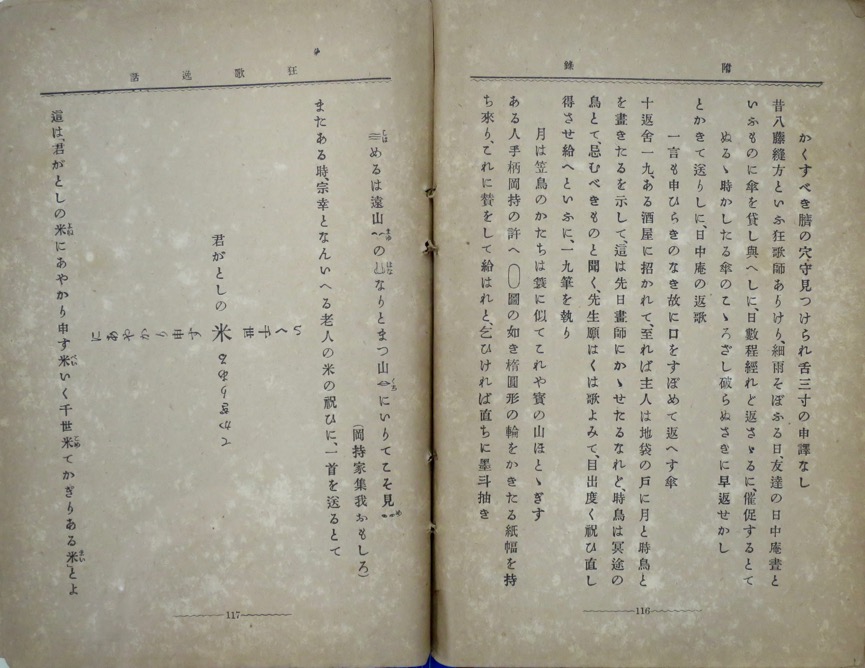 附錄
かくすべき臍の穴守見つけられ舌三寸の申譯なし
昔八藤縫方といふ狂歌師ありけり、細雨そぼふる日、友達の日中庵晝と
いふものに傘を貸し與へしに、日數程經れど返さゞるに、催促するとて
ぬるゝ時かしたる傘のこゝろざし破らぬさきに早返せかし
とかきて送りしに、日中庵の返歌
一言も申ひらきのなき故に口をすぼめて返へす傘
十返舍一九、ある酒屋に招かれて、至れば主人は地袋の戸に月と時鳥と
を畫きたるを示して、這は先日畫師にかゝせたるなれど、時鳥は冥途の
鳥とて、忌むべきものと聞く、先生願はくは歌よみて、目出度く祝ひ直し
得させ給へといふに、一九筆を執り
月は笠鳥のかたちは簑に似てこれや寳の山ほとゝぎす
ある人手柄岡持の許へ 圖の如き楕圓形の輪をかきたる紙幅を持
ち來り、これに贊をして給はれと、乞ひければ直ちに墨斗抽き
116
狂歌逸話
めるは遠山 の なりとまつ山 にいりてこそ見
(岡持家集我おもしろ)
またある時、宗幸となんいへる老人の米の祝ひに、一首を送るとて
君がとしの米
いく千世
にあやかり申す
てかぎりある
這は、君がとしの米よねにあやかり申す米べいいく千世米こめてかぎりある米まいとよ
117